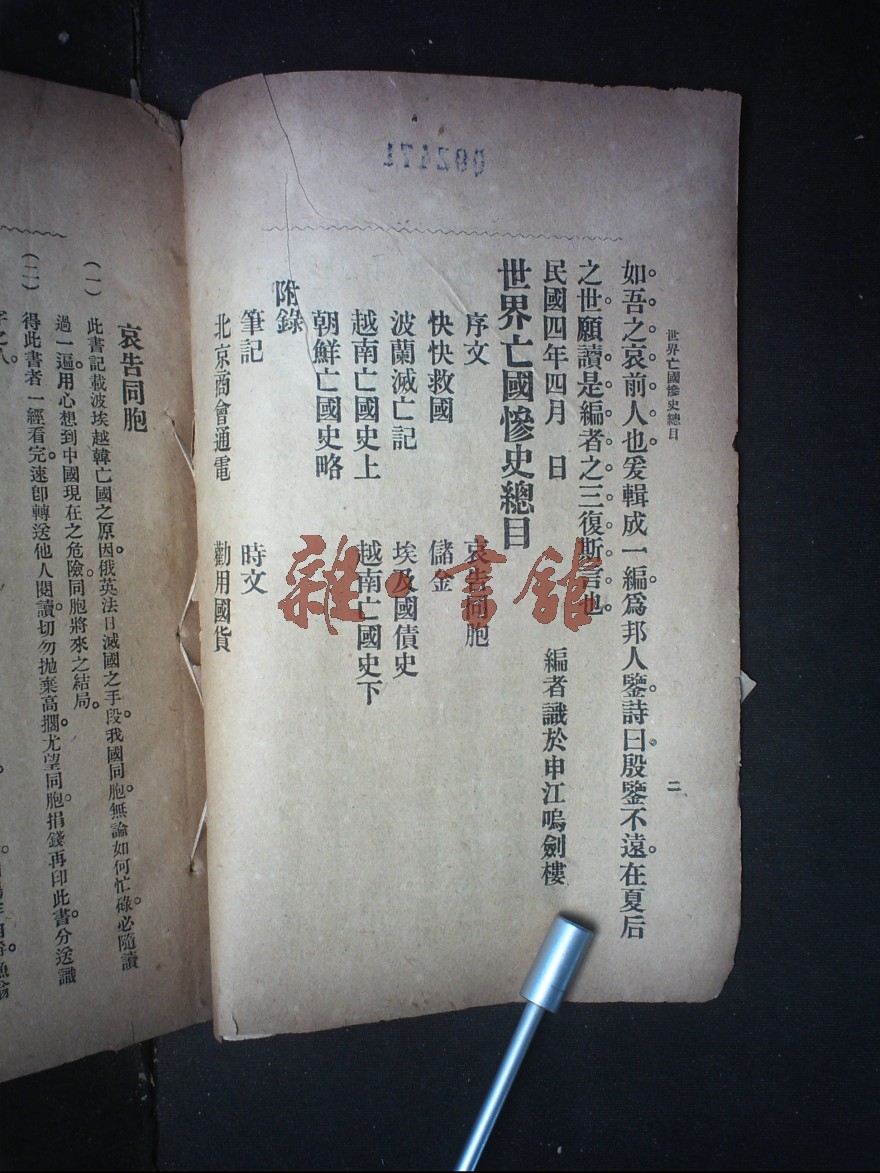 世界亡國慘史總目
二
如吾之哀前人也。爰輯成一編。爲邦人鑒。詩曰。殷鑒不遠。在夏后
之世。願讀是編者之三復斯言也
民國四年四月　日　編者識於申江鳴劍樓
世界亡國慘史總目
序文　哀告同胞
快快救國　儲金
波蘭滅亡記　埃及國債史
越南亡國史上　越南亡國史下
朝鮮亡國史略
附錄
筆記　時文
北京商會通電　勸用國貨
002471
雜·書館
哀告同胞
(一)　此書記載波埃越韓亡國之原因。俄英法日滅國之手段。我國同胞。無論如何忙碌。必隨讀
過一遍。用心想到中國現在之危險。同胞將來之結局。
(二)　得此書者。一經看完。速卽轉送他人閱讀。切勿拋棄高擱。尤望同胞捐錢再印此書。分送識
字之人。